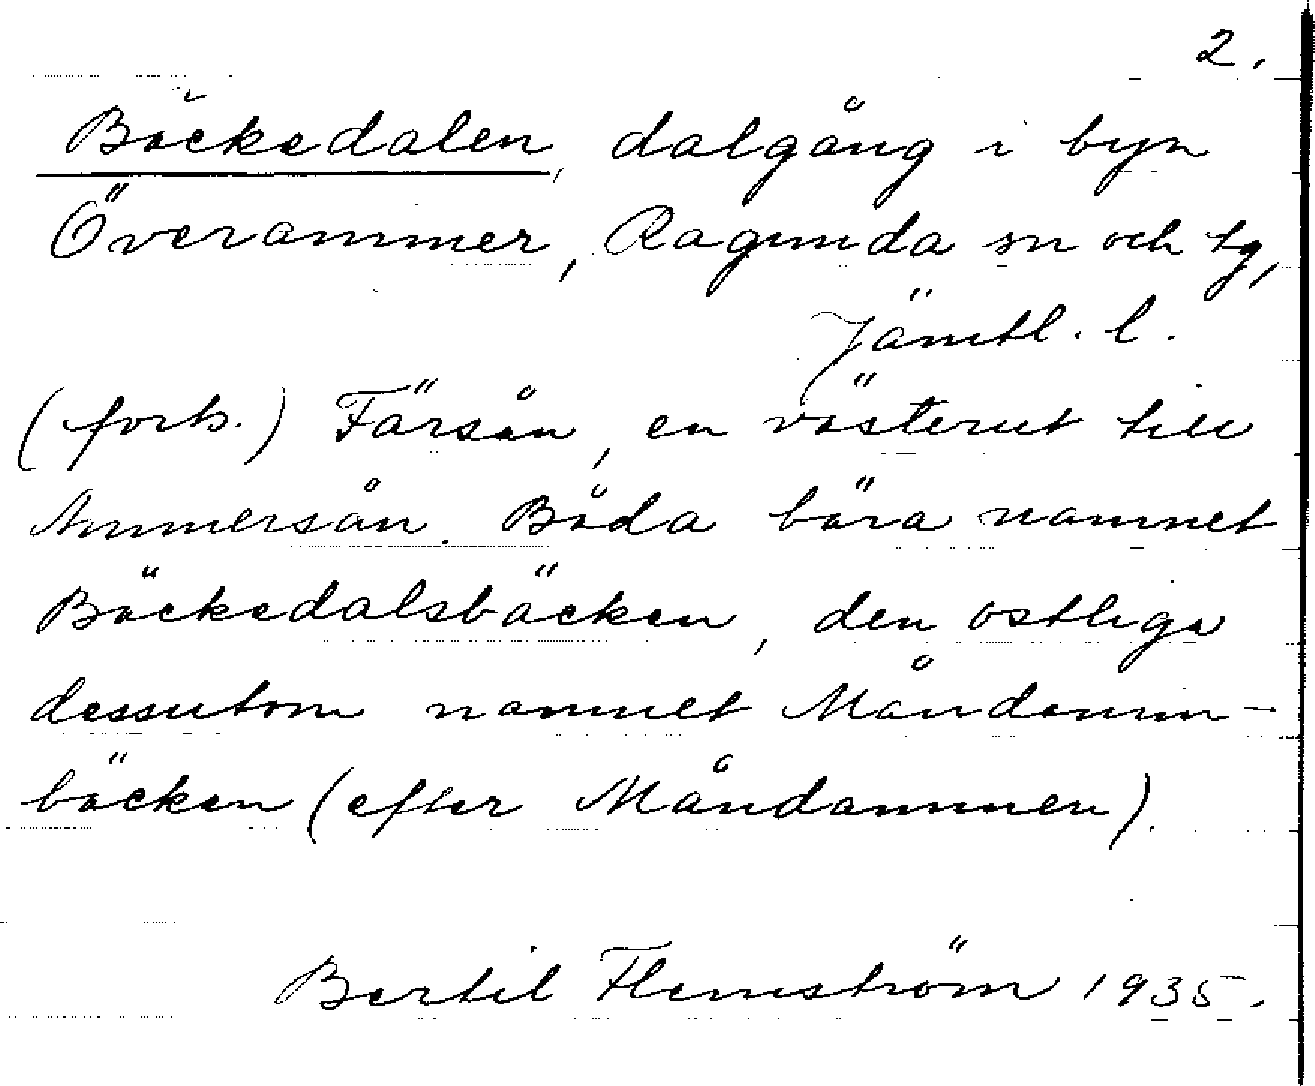 2.
Bäckedalen, dalgång i byn
Överammer, Ragunda sn och tg,
Jämtl. l.
(forts.) Färsån, en västerut till
Ammersån. Båda bära namnet
Bäckedalsbäcken, den ostliga
dessutom namnet Måndamm-
bäcken (efter Måndammen).
Bertil Flemström 1935.